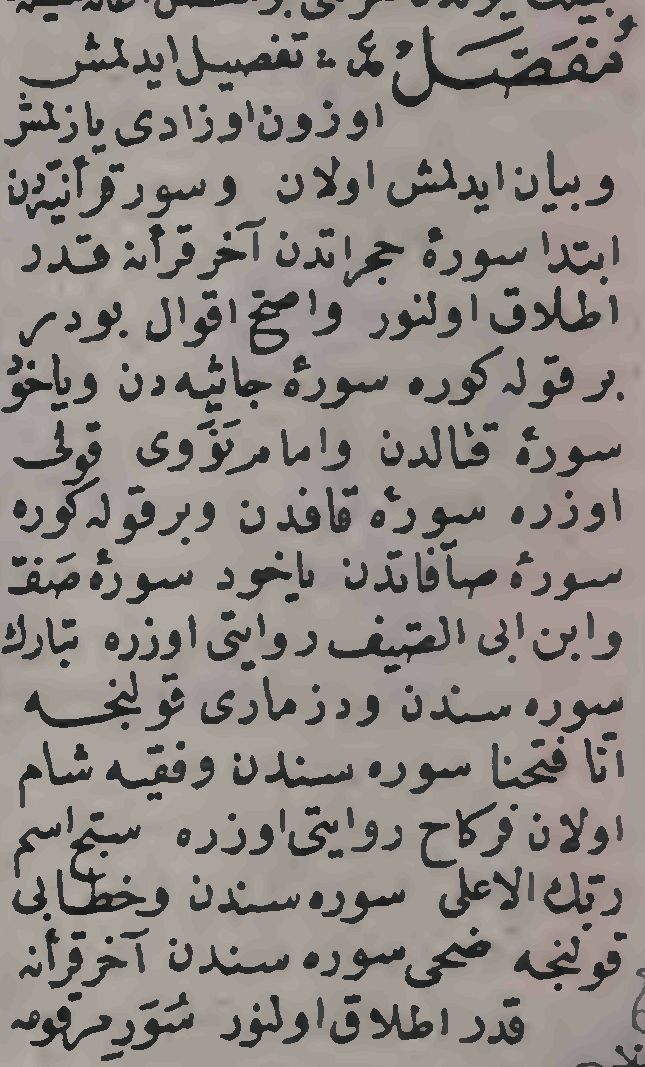 مُفَصَّل ع: تفصيل ايدلمش
اوزون اوزادى يازلمش
وبيان ايدلمش اولان وسور قرآنيه‌دن
ابتدا سورۀ حجراتدن آخر قرآنه قدر
اطلاق اولنور واصح اقوال بودر
بر قوله كوره سورۀ جاثيه دن وياخود
سورۀ قتالدن وامام نَوَوى قولى
اوزره سورۀ قافدن وبر قوله كوره
سورۀ صآفاتدن ياخود سورۀ صَفّ
وابن ابى الصيف روايتى اوزره تبارك
سوره سندن ودزمارى قولنجه
انّا فتحنا سوره سندن وفقيه شام
اولان فركاح روايتى اوزره سبّح اسم
ربّك الاعلى سوره سندن وخطابى
قولنجه ضحى سوره سندن آخر قرآنه
قدر اطلاق اولنور سُوَرِ مرقومه